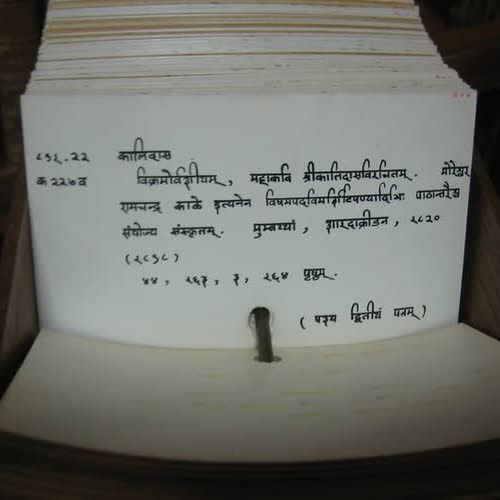 ८९१.२२ कालिदास
क २२७व विक्रमोर्वशीयम्, महाकवि श्रीकालिदासविरचितम्. मोरेश्वर
रामचन्द्र काळे इत्यनेन विषमपदविमर्शिटिपण्यादिभिः पाठान्तरैश्च
संयोज्य संस्कृतम्. मुम्बय्यां, शारदाक्रीडन, १८२०
(१८९८)
४४, १६३, ३, १६४ पृष्ठम्.
( पश्य द्वितीयं पत्रम् )